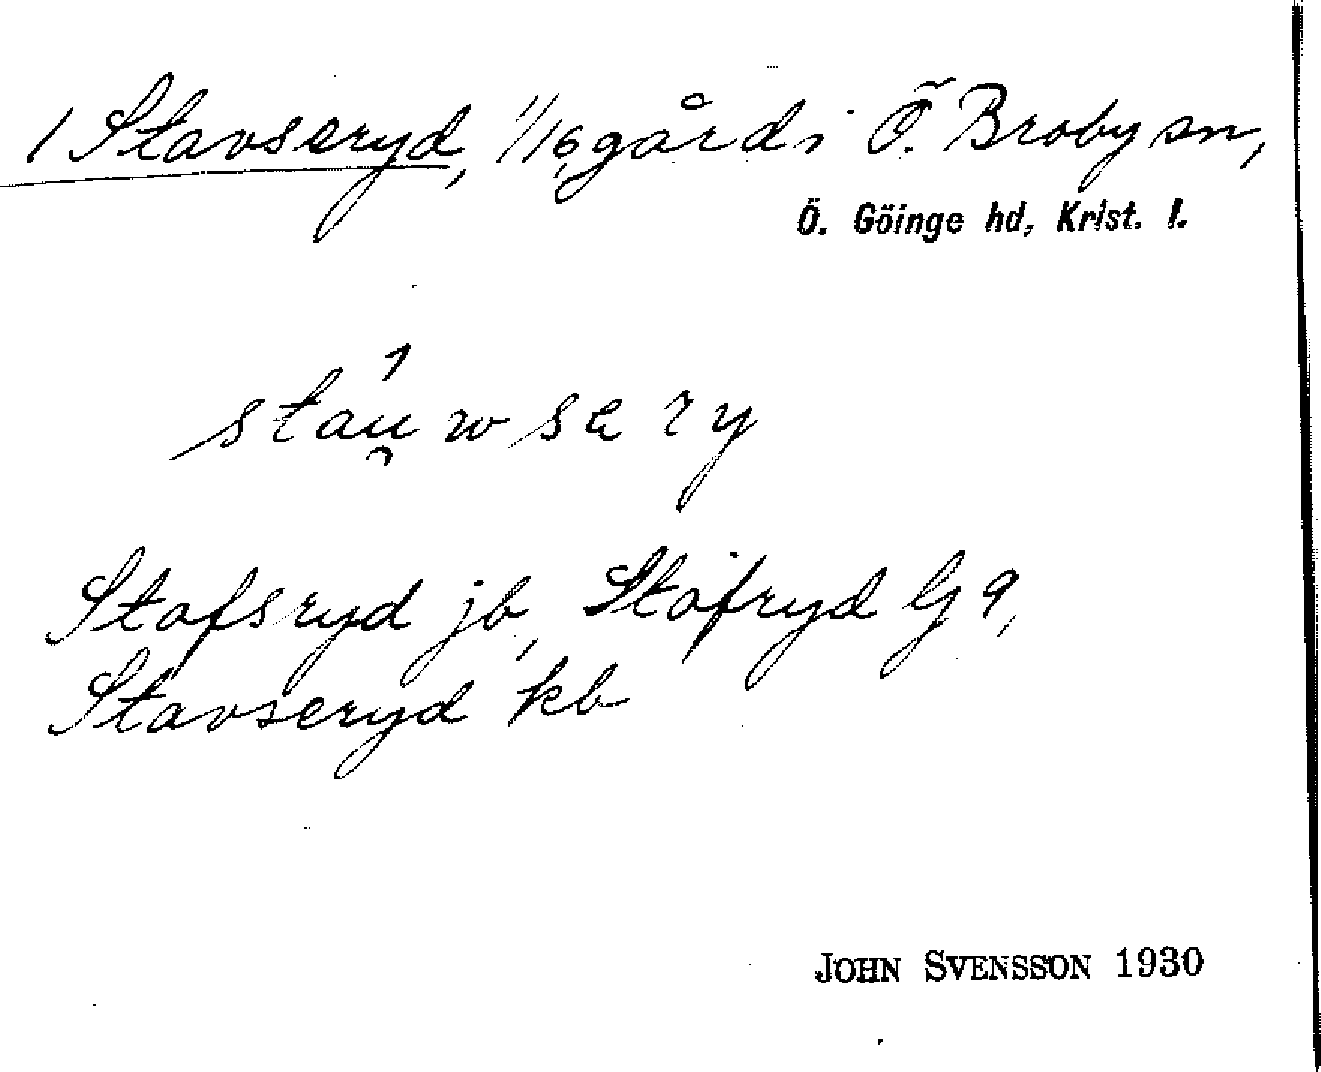 1 Stavseryd, 1/16 gård i Ö. Broby sn,
Ö. Göinge hd, Krist. l.
stáu̯wsery
Stafsryd jb, Stafryd G 9,
Stavseryd kb
JOHN SVENSSON 1930